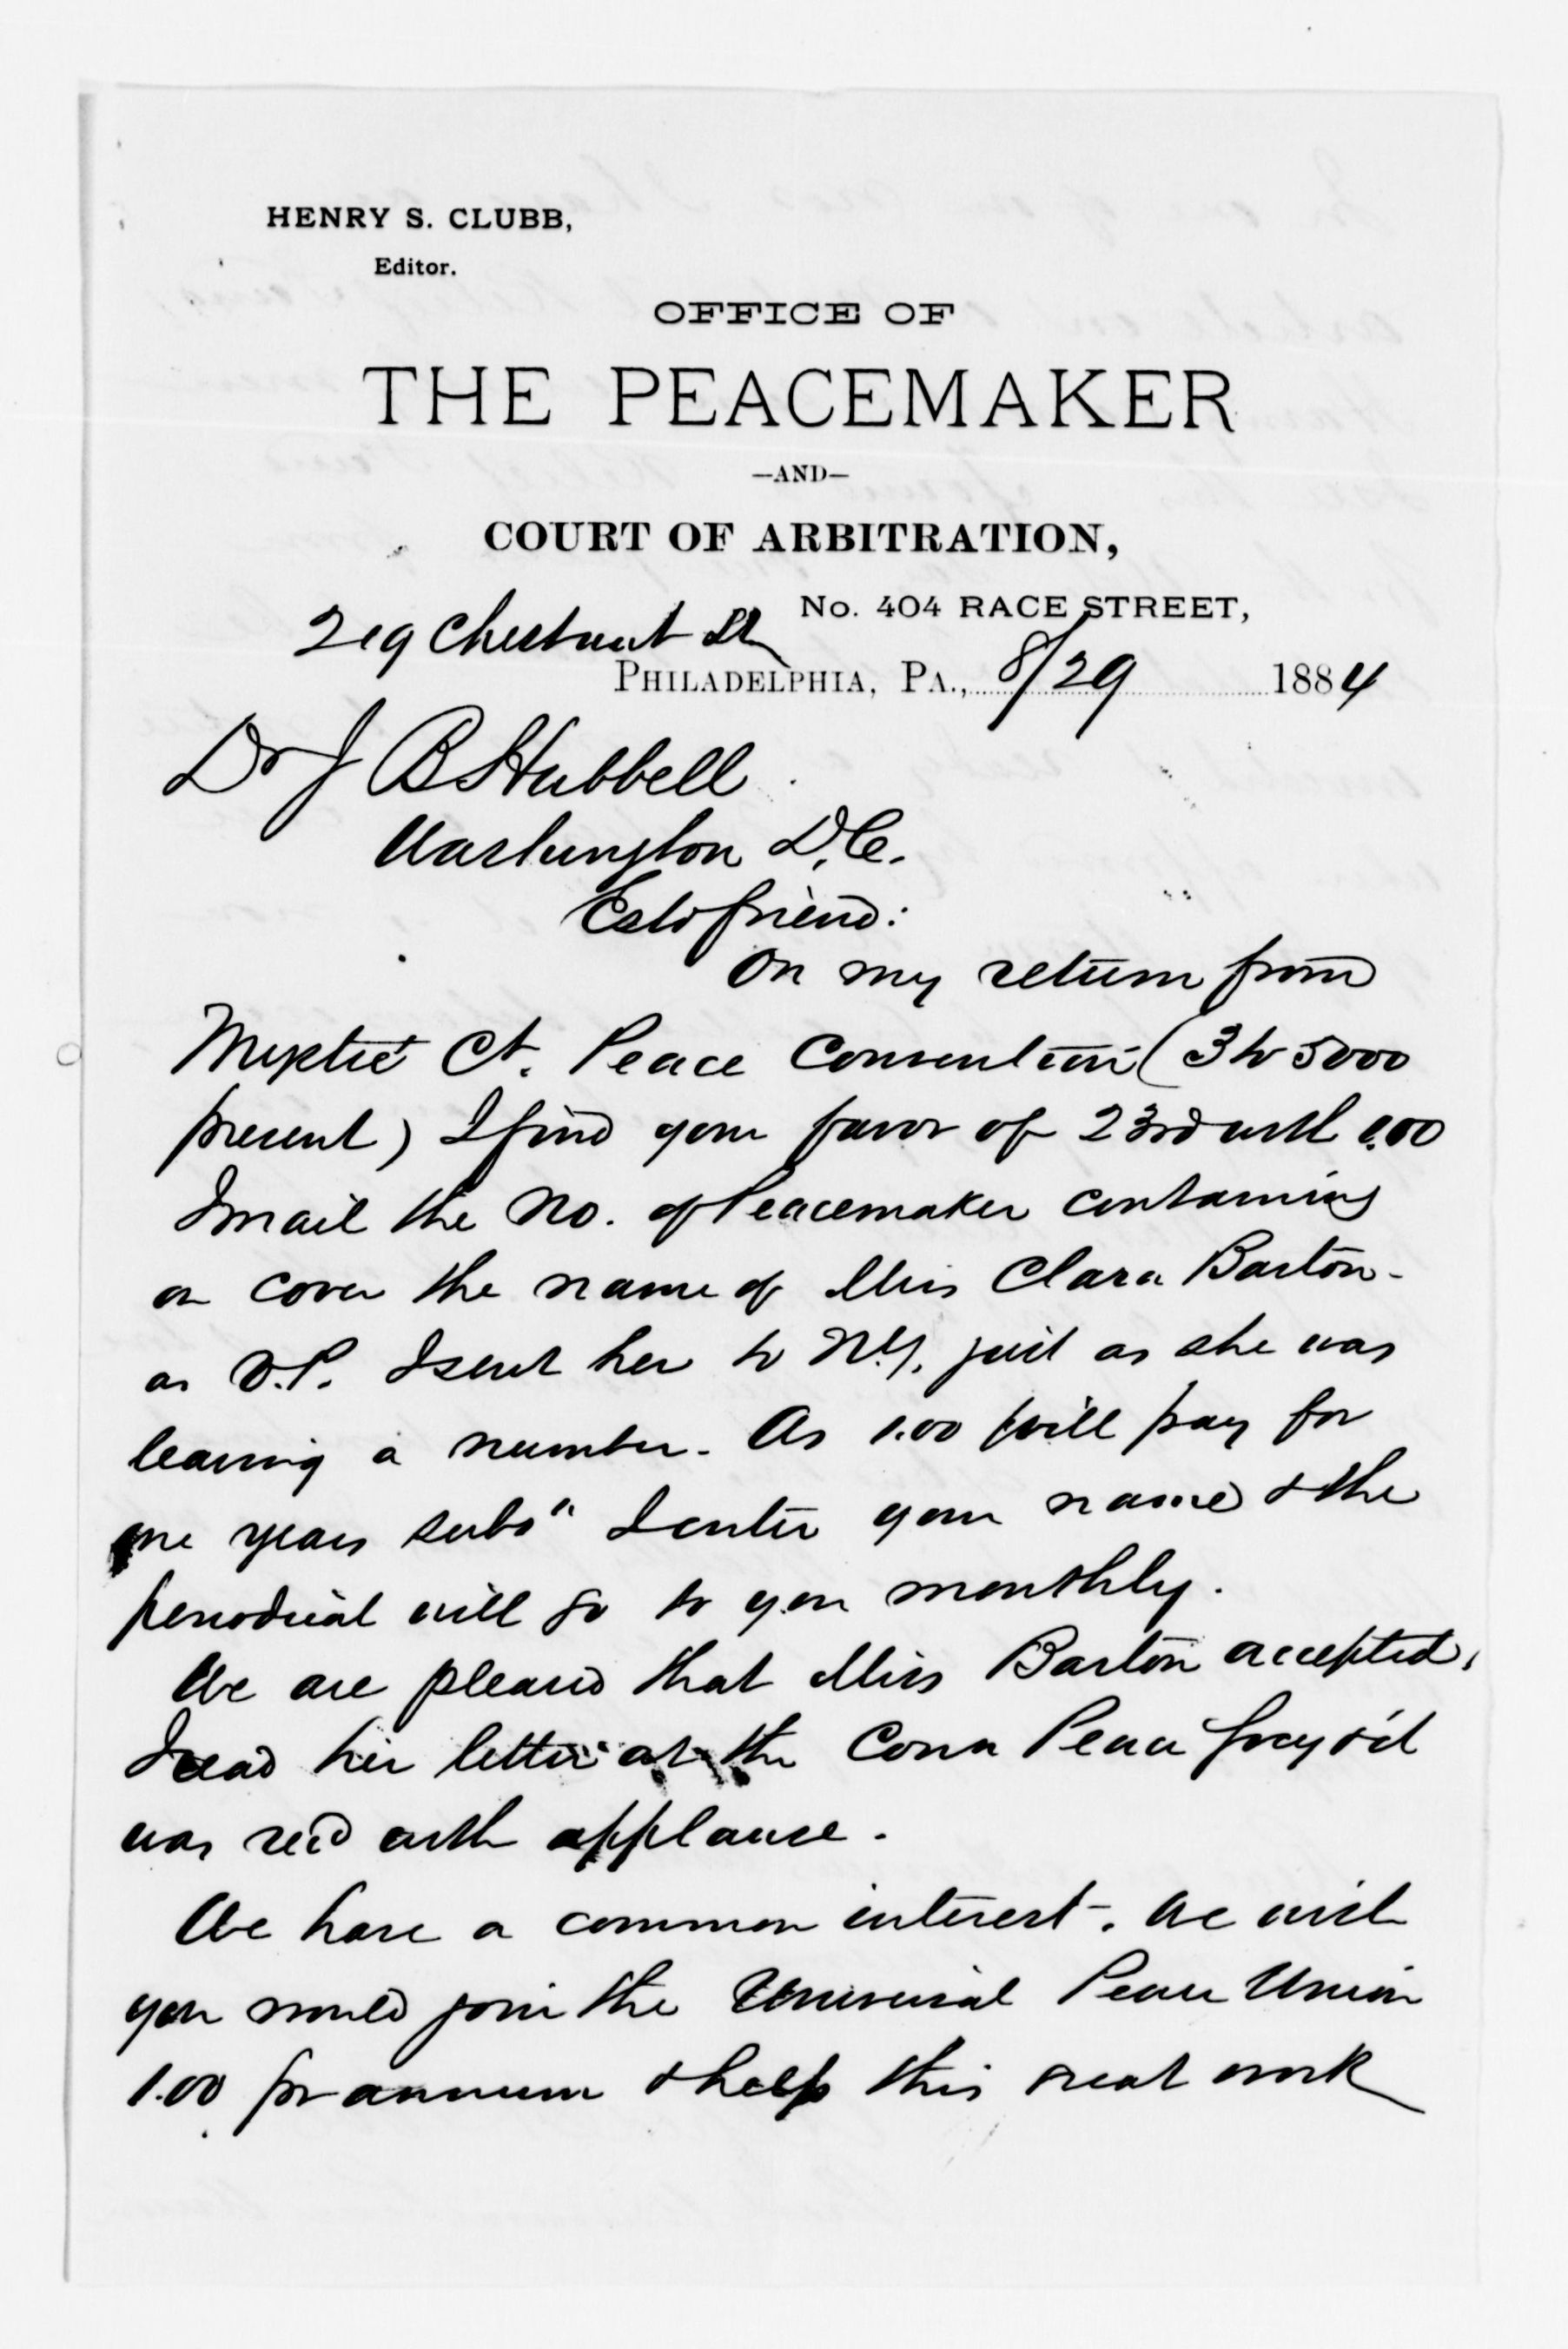 HENRY S. CLUBB,
Editor.
OFFICE OF
THE PEACEMAKER
—AND—
COURT OF ARBITRATION,
No. 404 RACE STREET,
219 Chestnut St
PHILADELPHIA, PA., 8/29 1884
Dr J B Hubbell
Washington D.C.
Estd friend:
On my return from
Mystic Ct. Peace Convention (3 to 5000
present) I find your favor of 23rd with 1.00
I mail the No. of Peacemaker containing
on cover the name of Miss Clara Barton-
as V.P. I sent her to N.Y. just as she was
leaving a number. As 1.00 will pay for
one years subs" I enter your name & the
periodical will go to you monthly.
We are pleased that Miss Barton accepted,
I read her letter at the Conn Peace Socy & it
was recd with applause.
We have a common interest. We wish
you would join the Universal Peace Union
1.00 pr annum & help this great work